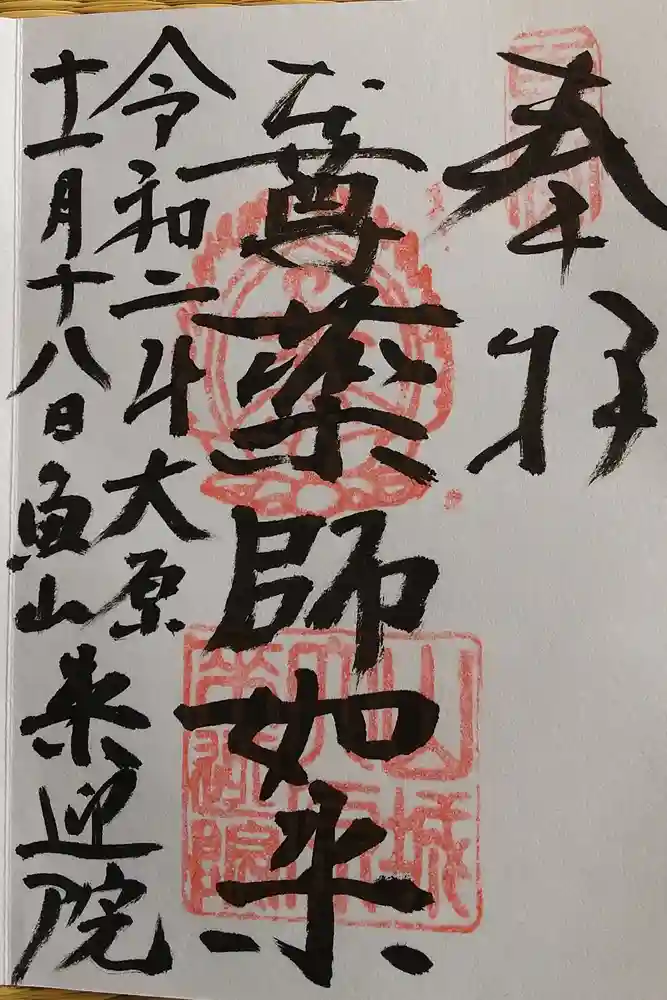 奉拝
尊薬師如来
令和二年大原
十一月十八日魚山
来迎院